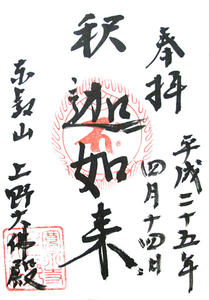 奉拝
平成二十五年
四月十四日
釈迦如来
東叡山
上野大佛殿